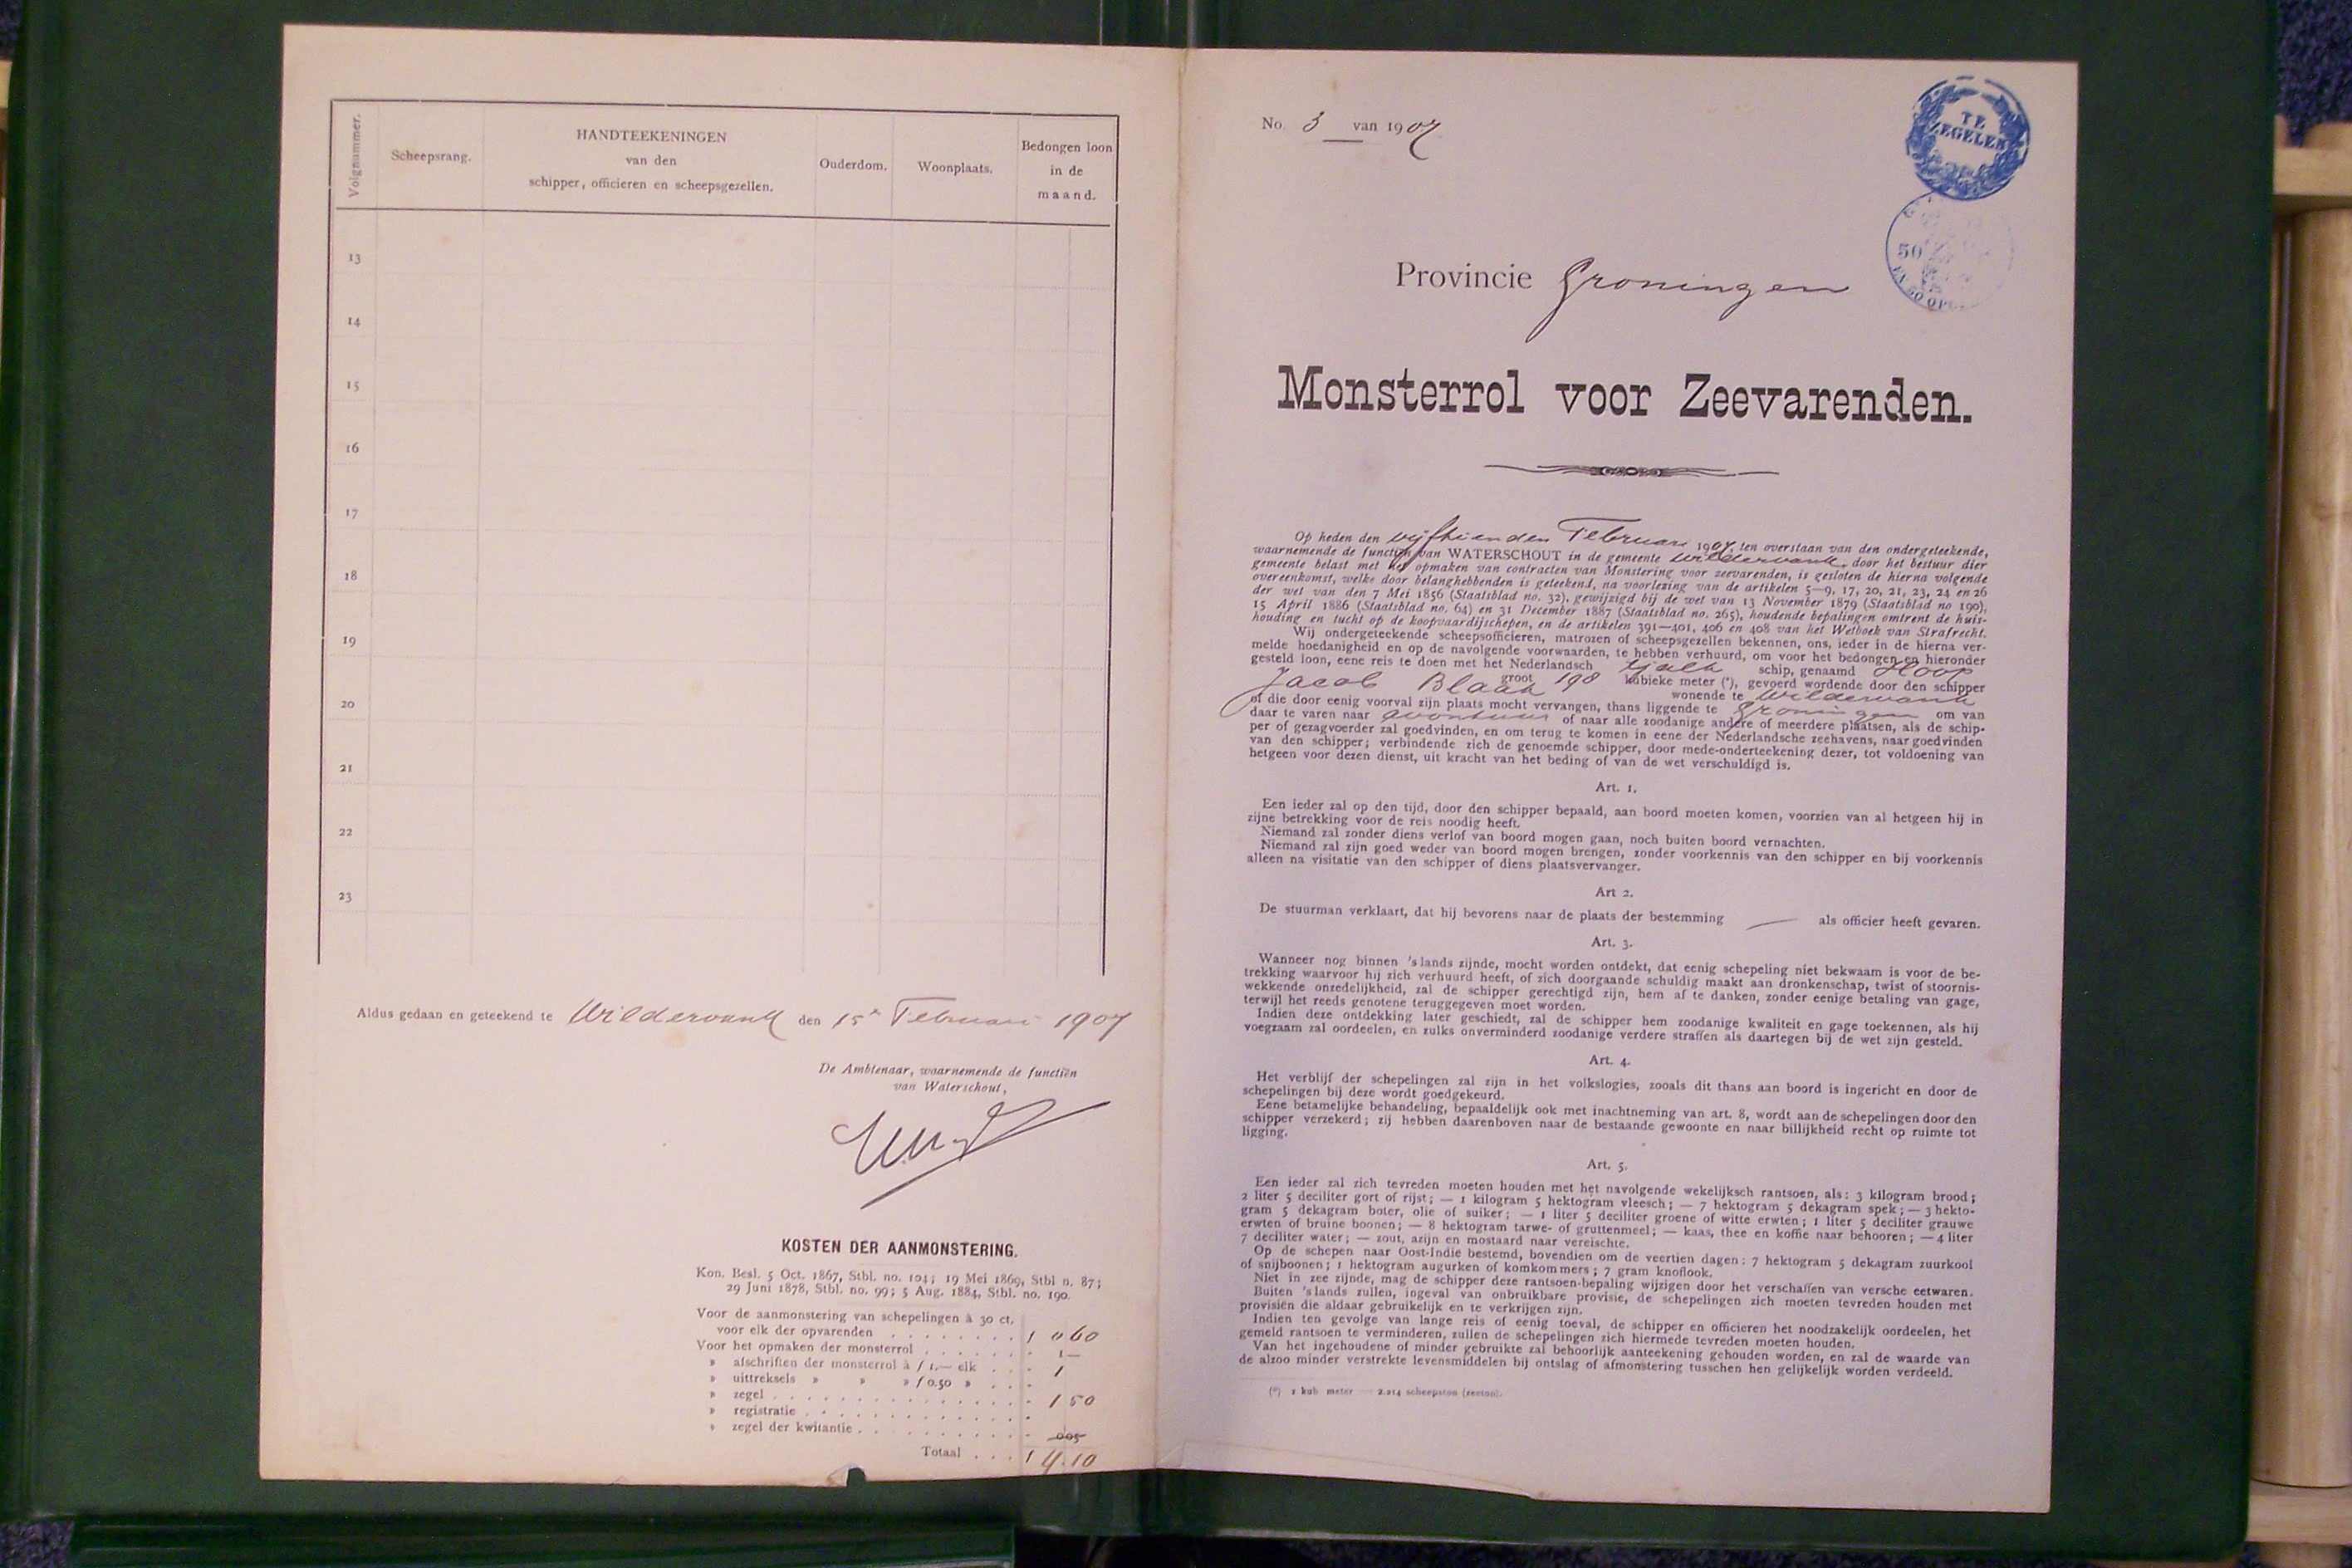 Volgnummer.
Scheepsrang.
HANDTEEKENINGEN
van den
schipper, officieren en scheepsgezellen.
Ouderdom.
Woonplaats.
Bedongen loon
in de
maand.
13
14
15
16
17
18
19
20
21
22
23
Aldus gedaan en geteekend te Wildervank den 15n Februari 1907
De Ambtenaar, waarnemende de functiën
van Waterschout,
KOSTEN DER AANMONSTERING.
Kon. Besl. 5 Oct. 1867, Stbl. no. 104; 19 Mei 1869, Stbl n. 87;
29 Juni 1878, Stbl. no. 99; 5 Aug. 1884, Stbl. no. 190.
Voor de aanmonstering van schepelingen à 30 ct.
voor elk der opvarenden f 0 60
Voor het opmaken der monsterrol 1 —
» afschriften der monsterrol à f 1.— elk 1
» uittreksels » » » f 0.50 »
» zegel 1 50
» registratie
» zegel der kwitantie 005
Totaal f 4.10
No. 3 van 1907
TE
ZEGELEN
50
Provincie Groningen
Monsterrol voor Zeevarenden.
Op heden den vijftienden Februari 1907, ten overstaan van den ondergeteekende,
waarnemende de functiën van WATERSCHOUT in de gemeente Wildervank, door het bestuur dier
gemeente belast met het opmaken van contracten van Monstering voor zeevarenden, is gesloten de hierna volgende
overeenkomst, welke door belanghebbenden is geteekend, na voorlezing van de artikelen 5—9, 17, 20, 21, 23, 24 en 26
der wet van den 7 Mei 1856 (Staatsblad no. 32), gewijzigd bij de wet van 13 November 1879 (Staatsblad no 190),
15 April 1886 (Staatsblad no. 64) en 31 December 1887 (Staatsblad no. 265), houdende bepalingen omtrent de huis-
houding en tucht op de koopvaardijschepen, en de artikelen 391—401, 406 en 408 van het Wetboek van Strafrecht.
Wij ondergeteekende scheepsofficieren, matrozen of scheepsgezellen bekennen, ons, ieder in de hierna ver-
melde hoedanigheid en op de navolgende voorwaarden, te hebben verhuurd, om voor het bedongen en hieronder
gesteld loon, eene reis te doen met het Nederlandsch tjalk schip, genaamd Hoop
groot 198 kubieke meter (*), gevoerd wordende door den schipper
Jacob Blaak wonende te Wildervank
of die door eenig voorval zijn plaats mocht vervangen, thans liggende te Groningen om van
daar te varen naar avontuur of naar alle zoodanige andere of meerdere plaatsen, als de schip-
per of gezagvoerder zal goedvinden, en om terug te komen in eene der Nederlandsche zeehavens, naar goedvinden
van den schipper; verbindende zich de genoemde schipper, door mede-onderteekening dezer, tot voldoening van
hetgeen voor dezen dienst, uit kracht van het beding of van de wet verschuldigd is.
Art. 1.
Een ieder zal op den tijd, door den schipper bepaald, aan boord moeten komen, voorzien van al hetgeen hij in
zijne betrekking voor de reis noodig heeft.
Niemand zal zonder diens verlof van boord mogen gaan, noch buiten boord vernachten.
Niemand zal zijn goed weder van boord mogen brengen, zonder voorkennis van den schipper en bij voorkennis
alleen na visitatie van den schipper of diens plaatsvervanger.
Art 2.
De stuurman verklaart, dat hij bevorens naar de plaats der bestemming — als officier heeft gevaren.
Art. 3.
Wanneer nog binnen 's lands zijnde, mocht worden ontdekt, dat eenig schepeling niet bekwaam is voor de be-
trekking waarvoor hij zich verhuurd heeft, of zich doorgaande schuldig maakt aan dronkenschap, twist of stoornis-
wekkende onzedelijkheid, zal de schipper gerechtigd zijn, hem af te danken, zonder eenige betaling van gage,
terwijl het reeds genotene teruggegeven moet worden.
Indien deze ontdekking later geschiedt, zal de schipper hem zoodanige kwaliteit en gage toekennen, als hij
voegzaam zal oordeelen, en zulks onverminderd zoodanige verdere straffen als daartegen bij de wet zijn gesteld.
Art. 4.
Het verblijf der schepelingen zal zijn in het volkslogies, zooals dit thans aan boord is ingericht en door de
schepelingen bij deze wordt goedgekeurd.
Eene betamelijke behandeling, bepaaldelijk ook met inachtneming van art. 8, wordt aan de schepelingen door den
schipper verzekerd; zij hebben daarenboven naar de bestaande gewoonte en naar billijkheid recht op ruimte tot
ligging.
Art. 5.
Een ieder zal zich tevreden moeten houden met het navolgende wekelijksch rantsoen, als: 3 kilogram brood;
2 liter 5 deciliter gort of rijst; — 1 kilogram 5 hektogram vleesch; — 7 hektogram 5 dekagram spek; — 3 hekto-
gram 5 dekagram boter, olie of suiker; — 1 liter 5 deciliter groene of witte erwten; 1 liter 5 deciliter grauwe
erwten of bruine boonen; — 8 hektogram tarwe- of gruttenmeel; — kaas, thee en koffie naar behooren; — 4 liter
7 deciliter water; — zout, azijn en mostaard naar vereischte.
Op de schepen naar Oost-Indie bestemd, bovendien om de veertien dagen: 7 hektogram 5 dekagram zuurkool
of snijboonen; 1 hektogram augurken of komkommers; 7 gram knoflook.
Niet in zee zijnde, mag de schipper deze rantsoen-bepaling wijzigen door het verschaffen van versche eetwaren.
Buiten 's lands zullen, ingeval van onbruikbare provisie, de schepelingen zich moeten tevreden houden met
provisiën die aldaar gebruikelijk en te verkrijgen zijn.
Indien ten gevolge van lange reis of eenig toeval, de schipper en officieren het noodzakelijk oordeelen, het
gemeld rantsoen te verminderen, zullen de schepelingen zich hiermede tevreden moeten houden.
Van het ingehoudene of minder gebruikte zal behoorlijk aanteekening gehouden worden, en zal de waarde van
de alzoo minder verstrekte levensmiddelen bij ontslag of afmonstering tusschen hen gelijkelijk worden verdeeld.
(*) 1 kub meter = 2.214 scheepston (zeeton).